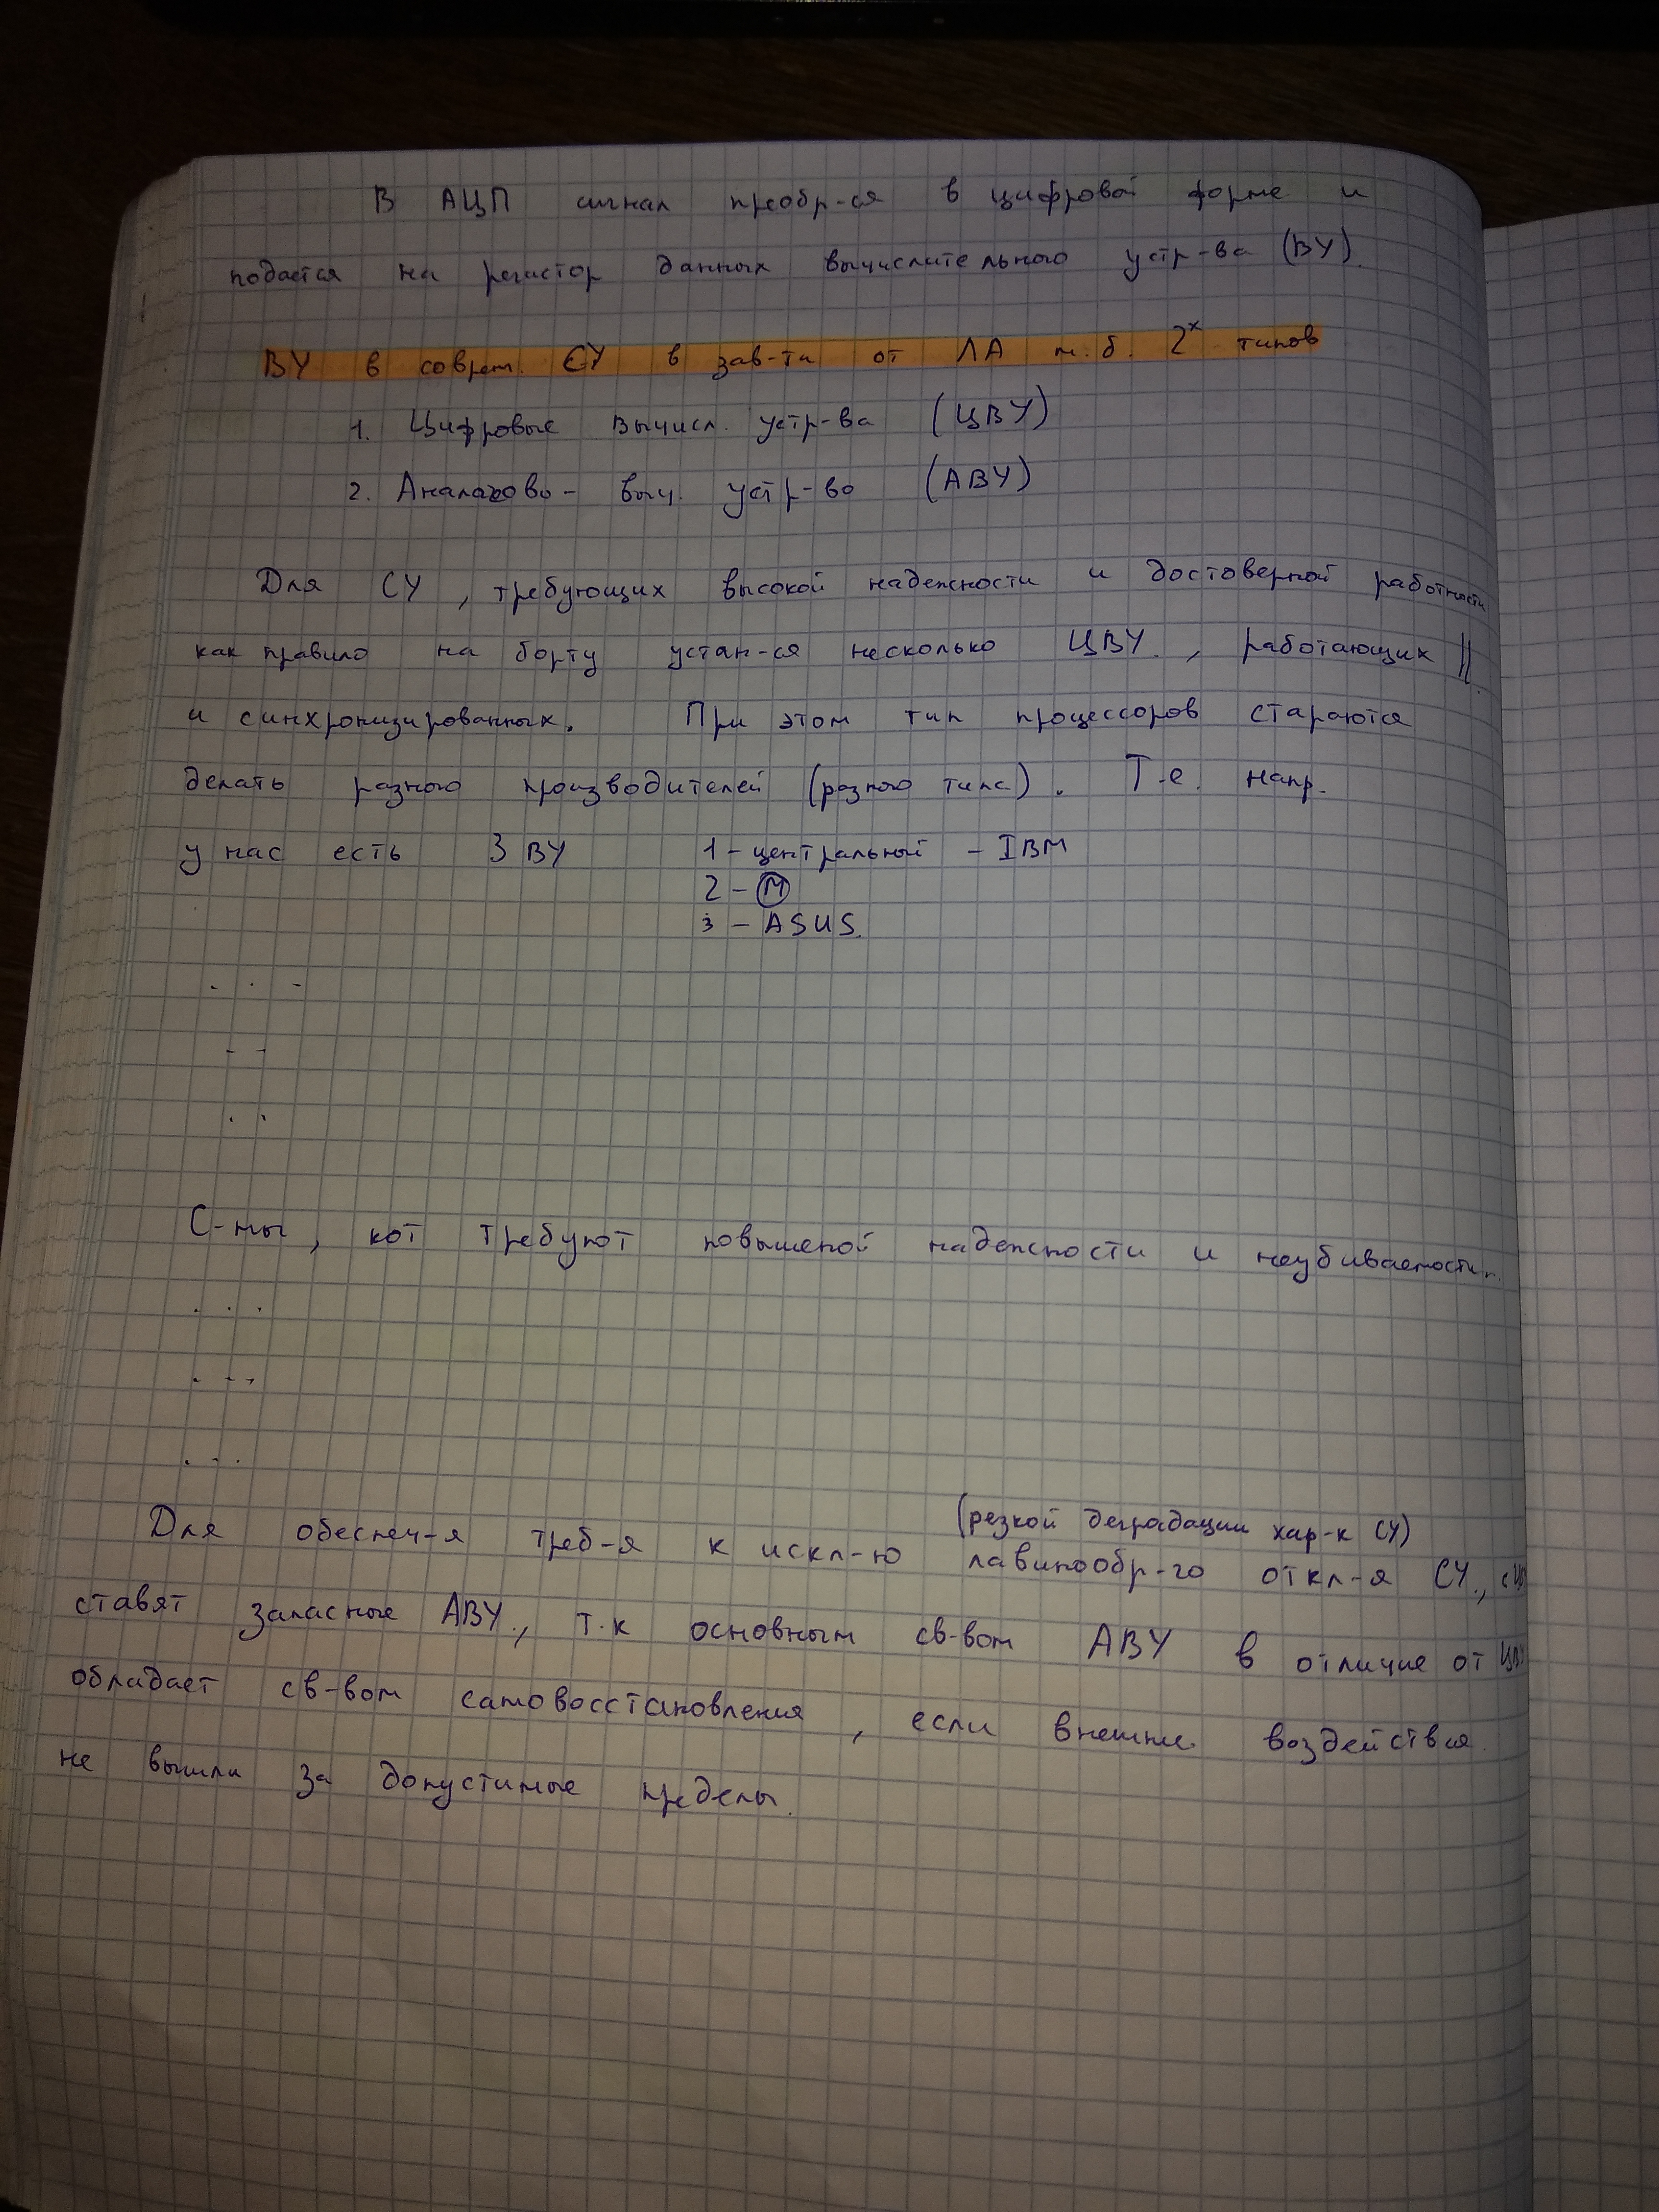 В АЦП сигнал преобр-ся в цифровой форме и
подается на регистор данных вычислительного устр-ва (ВУ).
ВУ в соврем. СУ в зав-ти от ЛА м.б. 2х типов
1. Цифровые вычисл. устр-ва (ЦВУ)
2. Аналогово- выч. устр-во (АВУ)
Для СУ, требующих высокой надежности и достоверной работности
как правило на борту устан-ся несколько ЦВУ, работающих ||
и синхронизированных. При этом тип процессоров стараются
делать разного производителей (разного типа). Т.е. напр.
у нас есть 3 ВУ 1 - центральный - IBM
2 - М
3 - ASUS.
. . .
. .
. .
С-мы, кот требуют повышеной надежности и неубиваемости..
. . .
. . .
. . .
(резкой деградации хар-к СУ)
Для обеспеч-я треб-я к искл-ю лавинообр-го откл-я СУ.,
ставят запасные АВУ., т.к основным св-вом АВУ в отличие от ЦВУ
обладает св-вом самовосстановления, если внешние воздействия
не вышли за допустимые пределы.